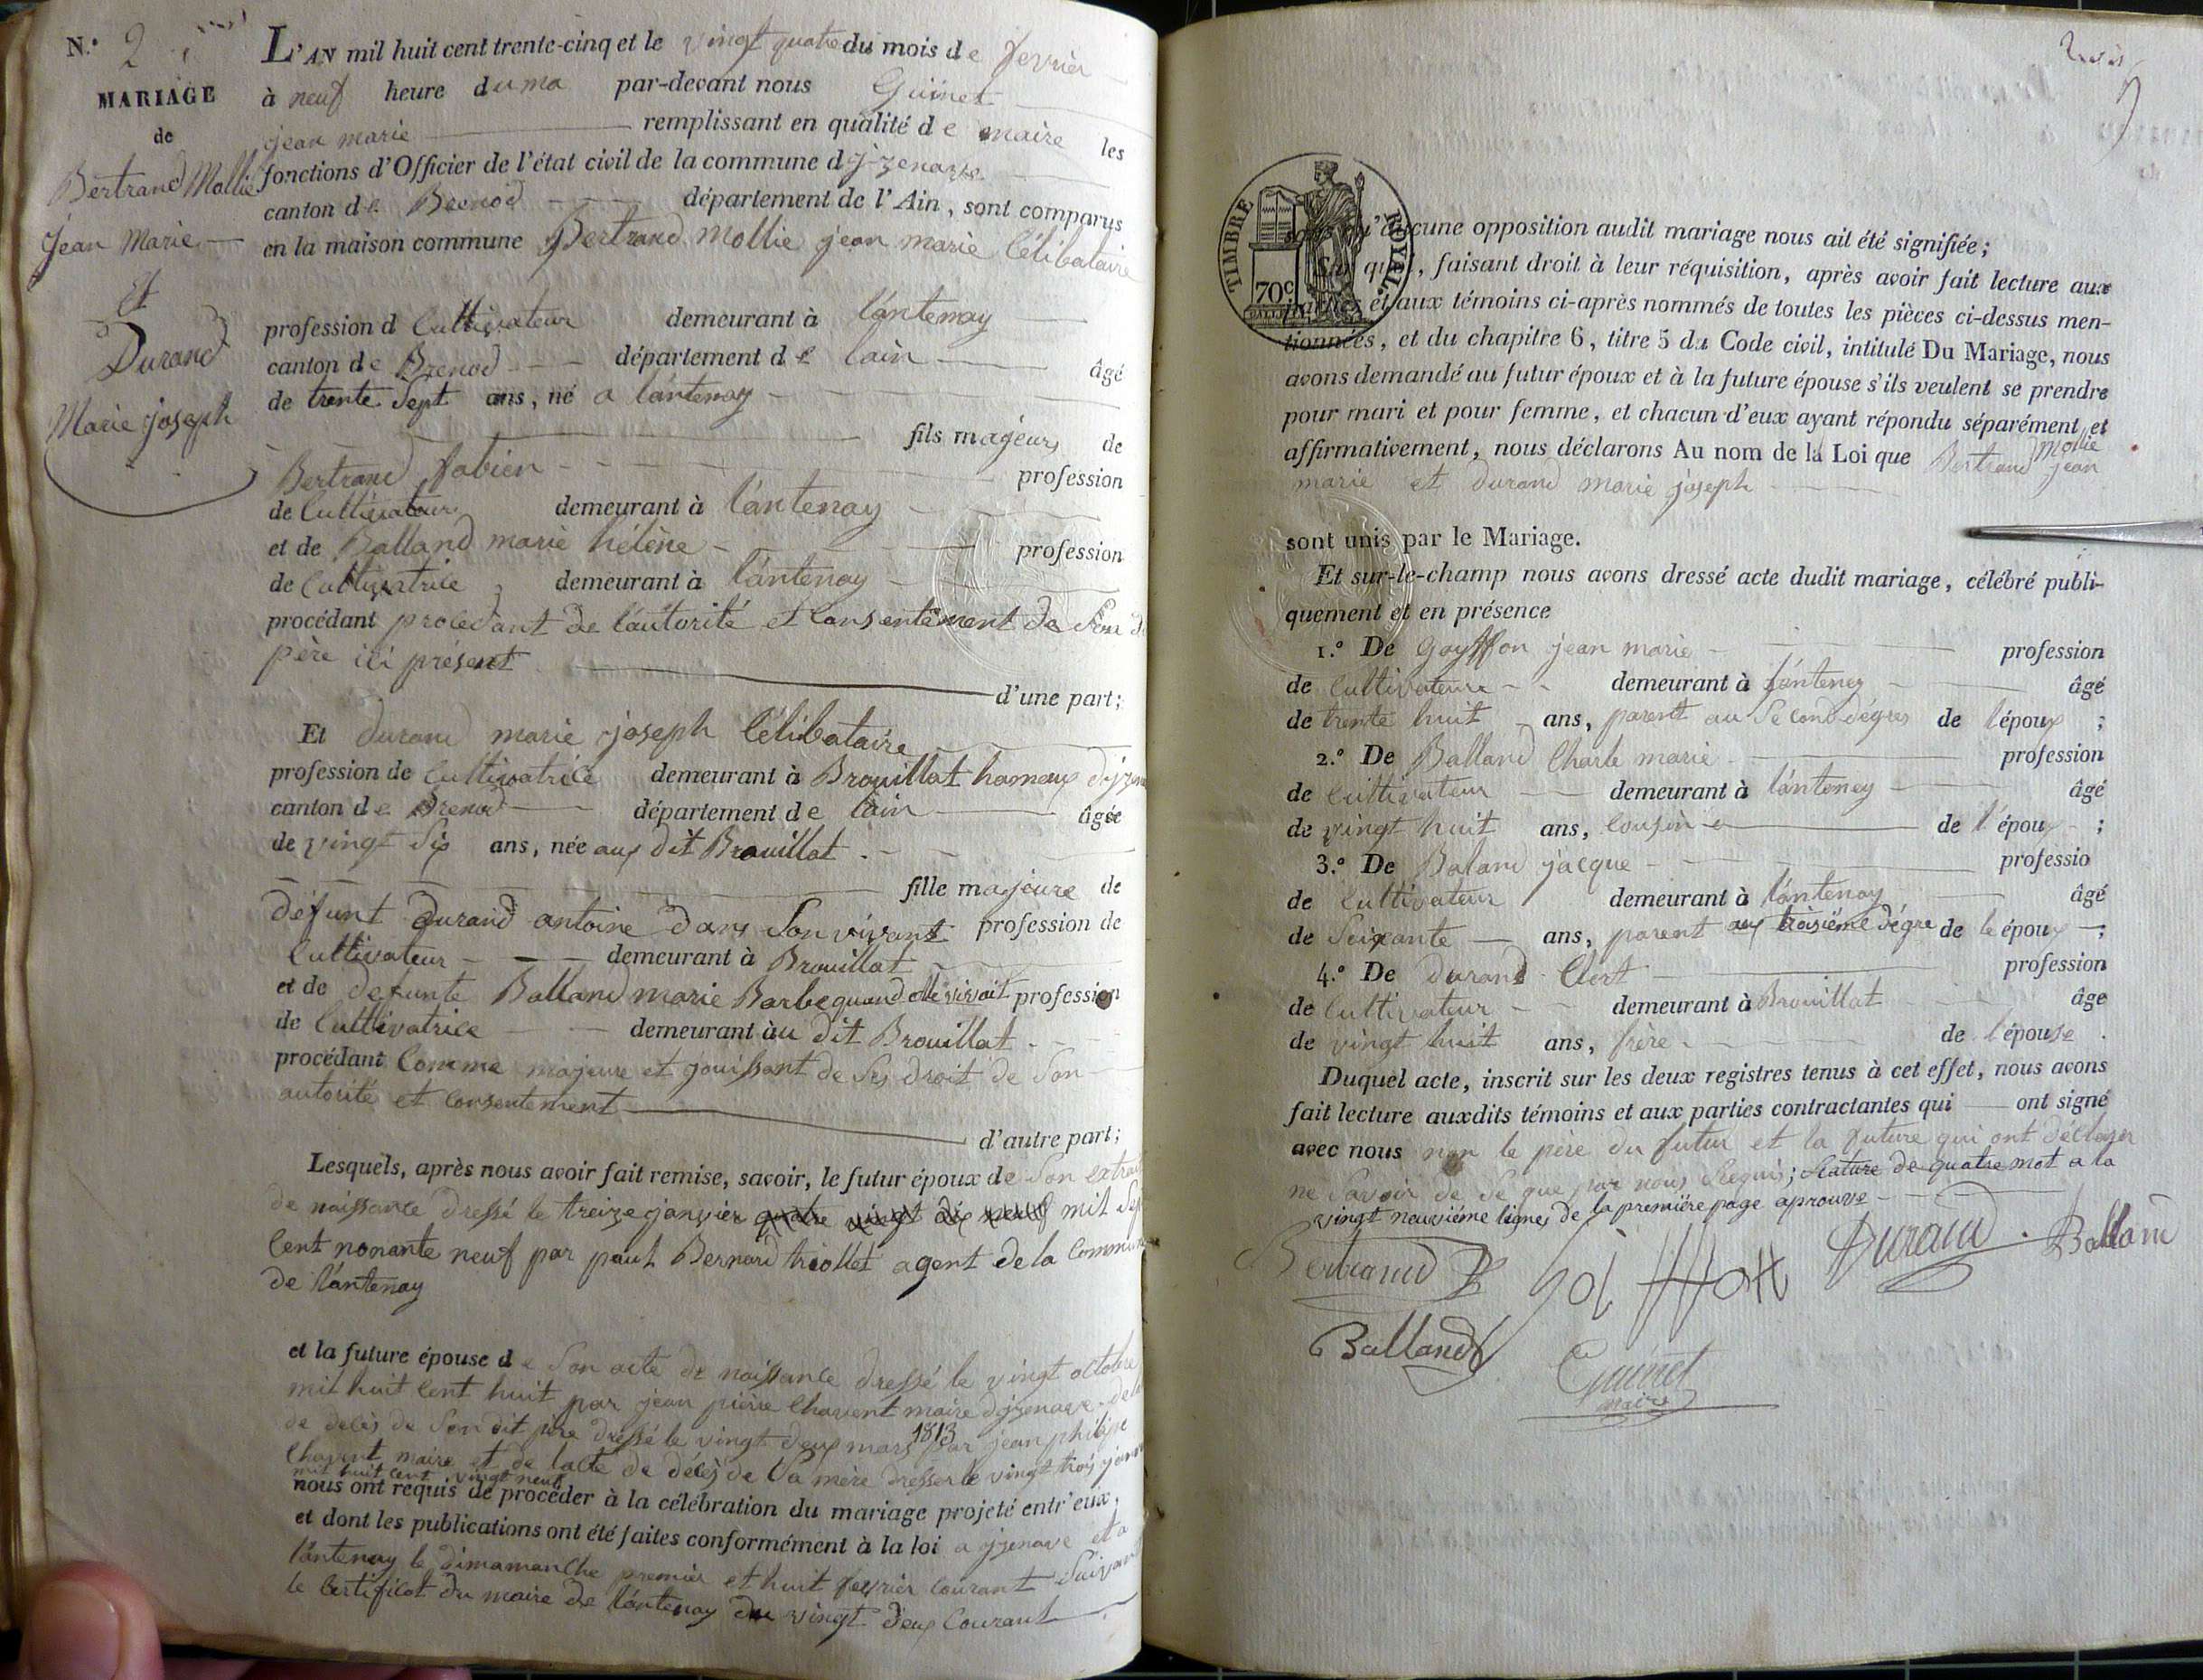 N.° 2
MARIAGE
de
Bertrand Mollie
jean Marie
Et
Durand
Marie joseph
L'AN mil huit cent trente-cinq et le vingt quatre du mois de fevrier
à neuf heure du ma par-devant nous Guinet
jean marie remplissant en qualité de maire les
fonctions d'Officier de l'état civil de la commune d'jzenave
canton de Brenod département de l'Ain, sont comparus
en la maison commune Bertrand Mollie jean marie Célibataire
profession d Cultivateur demeurant à lantenay
canton de Brenod département de lain âgé
de trente Sept ans, né a lantenay
fils majeur de
Bertrand fabien profession
de Cultivateur demeurant à lantenay
et de Balland marie hélène profession
de Cultivatrice demeurant à lantenay
procédant procedant de lautorité et Consentement de Son d
père ici présent
d'une part;
Et durand marie joseph Célibataire
profession de Cultivatrice demeurant à Brouillat hameau d'jzena
canton de Brenod département de lain âgée
de vingt Six ans, née aux dit Brouillat
fille majeure de
défunt durand antoine dans Son vivant profession de
Cultivateur demeurant à Brouillat
et de defunte Balland marie Barbe quand elle vivait profession
de Cultivatrice demeurant àu dit Brouillat
procédant Comme majeure et jouissant de Ses droit de Son
autorité et Consentement
d'autre part;
Lesquels, après nous avoir fait remise, savoir, le futur époux de Son extrai
de naissance dressé le treize janvier quatre vingt dix neuf mil Sep
Cent nonante neuf par paul Bernard triollet agent de la Commune
de lantenay
et la future épouse de Son acte de naissance dressé le vingt octobre
mil huit Cent huit par jean pierre Chavent maire d'jzenave de la
de décès de Son dit père dressé le vingt deux mars 1813 par jean philipe
Chavent maire et de lacte de décès de Sa mère dresser le vingt trois janv
mil huit cent vingt neuf
nous ont requis de procéder à la célébration du mariage projeté entr'eux,
et dont les publications ont été faites conformément à la loi a jzenave et a
lantenay le dimamanche premier et huit fevrier Courant Suivant
le Certificat du maire de lantenay du vingt deux Courant
TIMBRE ROYAL
70c
sans qu'aucune opposition audit mariage nous ait été signifiée;
Sur quoi, faisant droit à leur réquisition, après avoir fait lecture aux
parties et aux témoins ci-après nommés de toutes les pièces ci-dessus men-
tionnées, et du chapitre 6, titre 5 du Code civil, intitulé Du Mariage, nous
avons demandé au futur époux et à la future épouse s'ils veulent se prendre
pour mari et pour femme, et chacun d'eux ayant répondu séparément et
affirmativement, nous déclarons Au nom de la Loi que Bertrand Mollie jean
marie et durand marie joseph
sont unis par le Mariage.
Et sur-le-champ nous avons dressé acte dudit mariage, célébré publi-
quement et en présence
1.° De Goyffon jean marie profession
de Cultivateur demeurant à lantenay âgé
de trente huit ans, parent au Second dégres de lépoux ;
2.° De Balland Charle marie profession
de Cultivateur demeurant à lantenay âgé
de vingt huit ans, Cousin de l'époux ;
3.° De Baland jacque professio
de Cultivateur demeurant à lantenay âgé
de Soixante ans, parent aux troisième dégre de le époux ;
4.° De durand Clert profession
de Cultivateur demeurant à Brouillat âge
de vingt huit ans, frère de lépouse.
Duquel acte, inscrit sur les deux registres tenus à cet effet, nous avons
fait lecture auxdits témoins et aux parties contractantes qui ont signé
avec nous non le père du futur et la future qui ont déclarer
ne Savoir de Se que par nous Requis; Rature de quatre mot a la
vingt neuvième lignes de la première page aprouve
Bertrand Goiffon Durand Balland
Balland
Guinet
maire